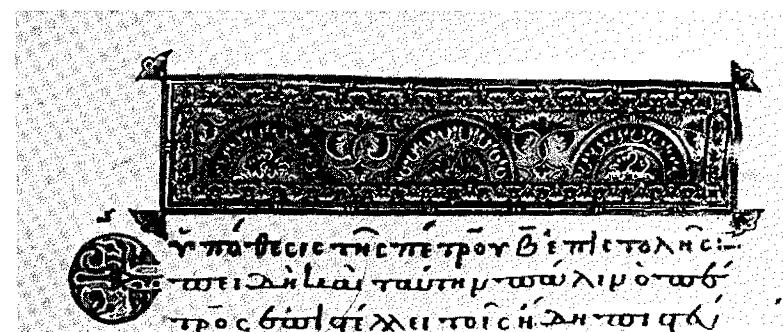 ὑπόθεσις τῆς πέτρου β̄ ἐπιστολῆς:–
Ἐπειδὴ καὶ ταύτην πάλιν ὁ πέ
τρος ἐπιστέλλει τοῖς ἤδη